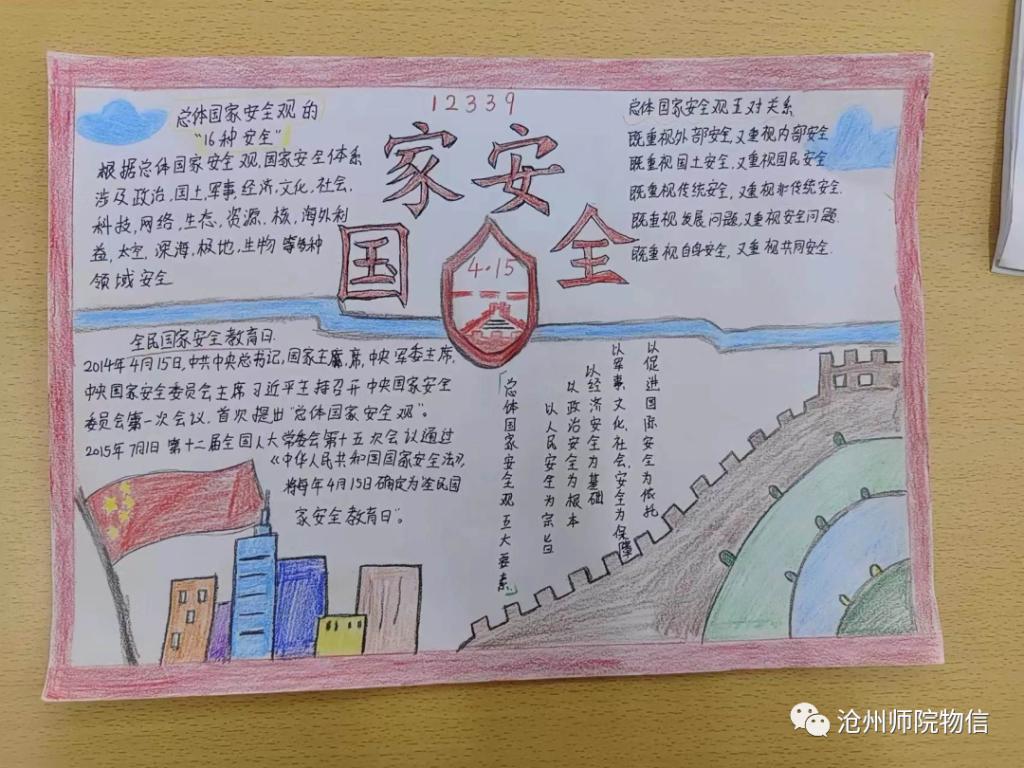 总体国家安全观的
"16种安全"
根据总体国家安全观,国家安全体系
涉及政治,国土,军事,经济,文化,社会,
科技,网络,生态,资源,核,海外利
益,太空,深海,极地,生物等多种
领域安全
12339
家安
国全
4·15
总体国家安全观五对关系
既重视外部安全,又重视内部安全
既重视国土安全,又重视国民安全
既重视传统安全,又重视非传统安全.
既重视发展问题,又重视安全问题.
既重视自身安全,又重视共同安全.
全民国家安全教育日.
2014年4月15日,中共中央总书记,国家主席,中央军委主席,
中央国家安全委员会主席习近平主持召开中央国家安全
委员会第一次会议,首次提出"总体国家安全观"。
2015年7月1日第十二届全国人大常委会第十五次会议通过
《中华人民共和国国家安全法》,
将每年4月15日确定为"全民国
家安全教育日"。
「总体国家安全观五大要素」
以人民安全为宗旨
以政治安全为根本
以经济安全为基础
以军事,文化,社会,安全为保障
以促进国际安全为依托
沧州师院物信